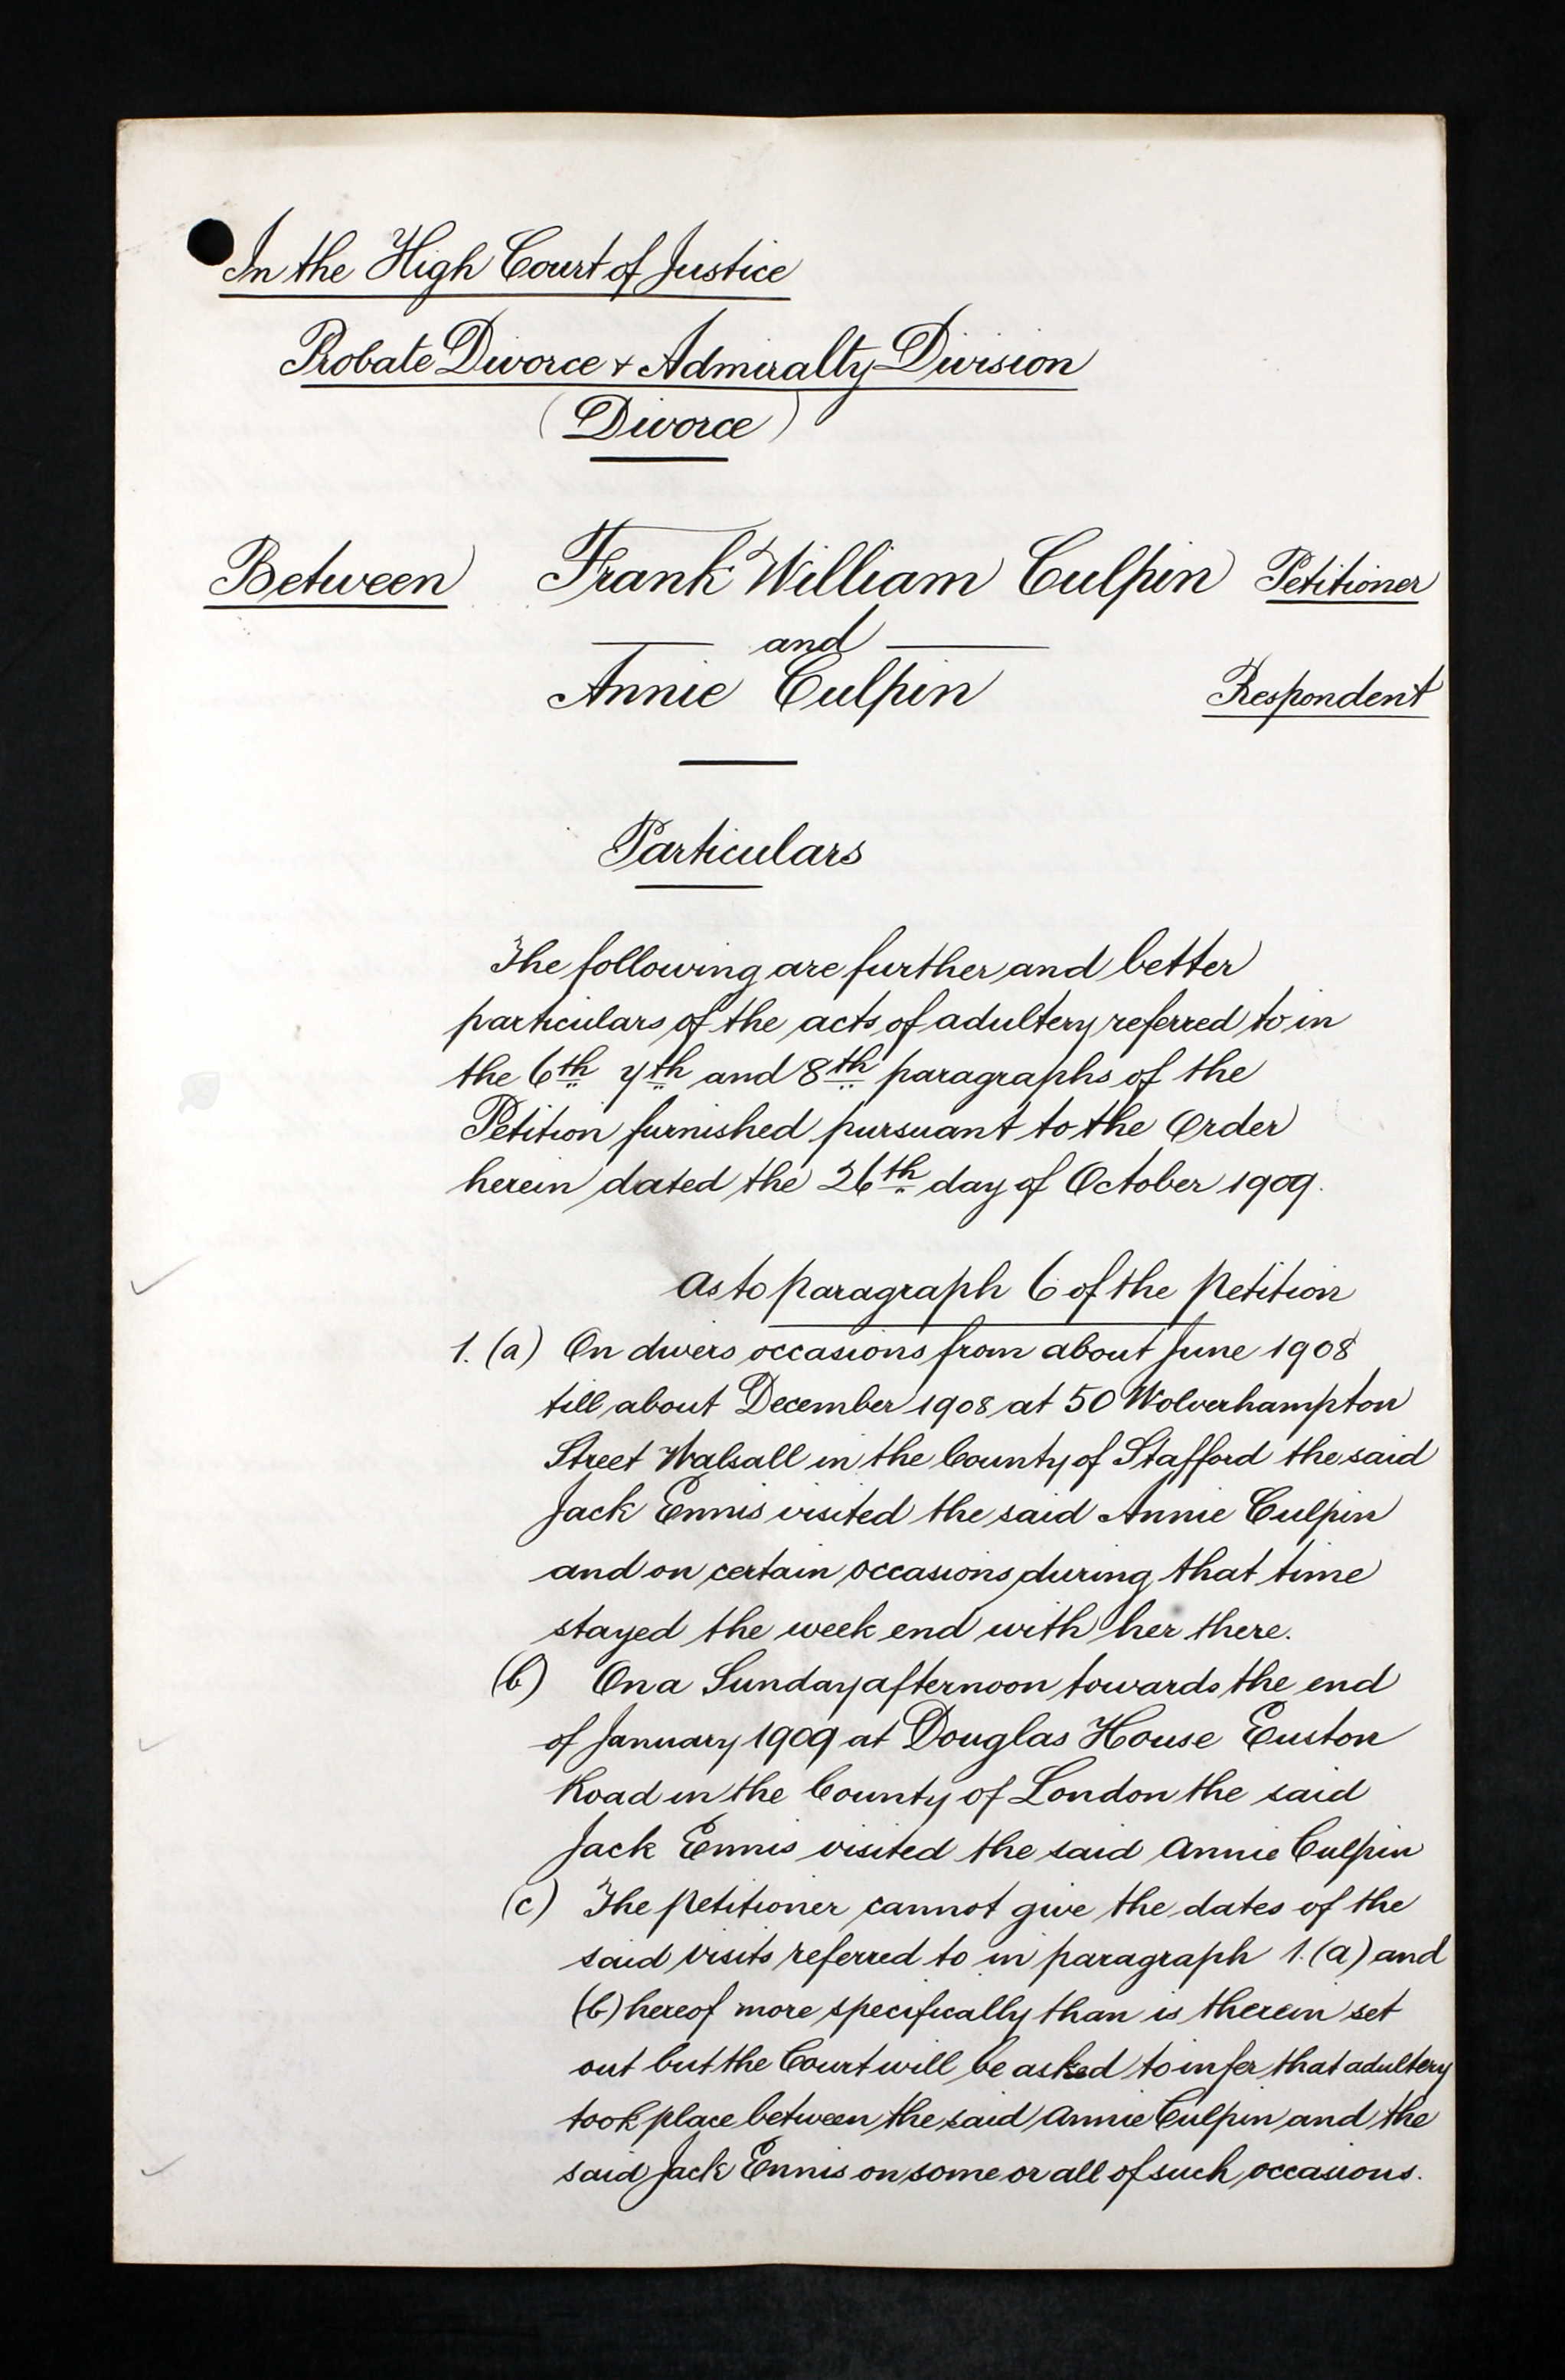 In the High Court of Justice
Probate Divorce & Admiralty Division
(Divorce)
Between Frank William Culpin Petitioner
and
Annie Culpin Respondent
Particulars
The following are further and better
particulars of the acts of adultery referred to in
the 6th 7th and 8th paragraphs of the
Petition furnished pursuant to the Order
herein dated the 26th day of October 1909.
As to paragraph 6 of the Petition
1. (a) On divers occasions from about June 1908
till about December 1908 at 50 Wolverhampton
Street Walsall in the County of Stafford the said
Jack Ennis visited the said Annie Culpin
and on certain occasions during that time
stayed the week end with her there.
(b) On a Sunday afternoon towards the end
of January 1909 at Douglas House Euston
Road in the County of London the said
Jack Ennis visited the said Annie Culpin
(c) The Petitioner cannot give the dates of the
said visits referred to in paragraph 1. (a) and
(b) hereof more specifically than is therein set
out but the Court will be asked to infer that adultery
took place between the said Annie Culpin and the
said Jack Ennis on some or all of such occasions.